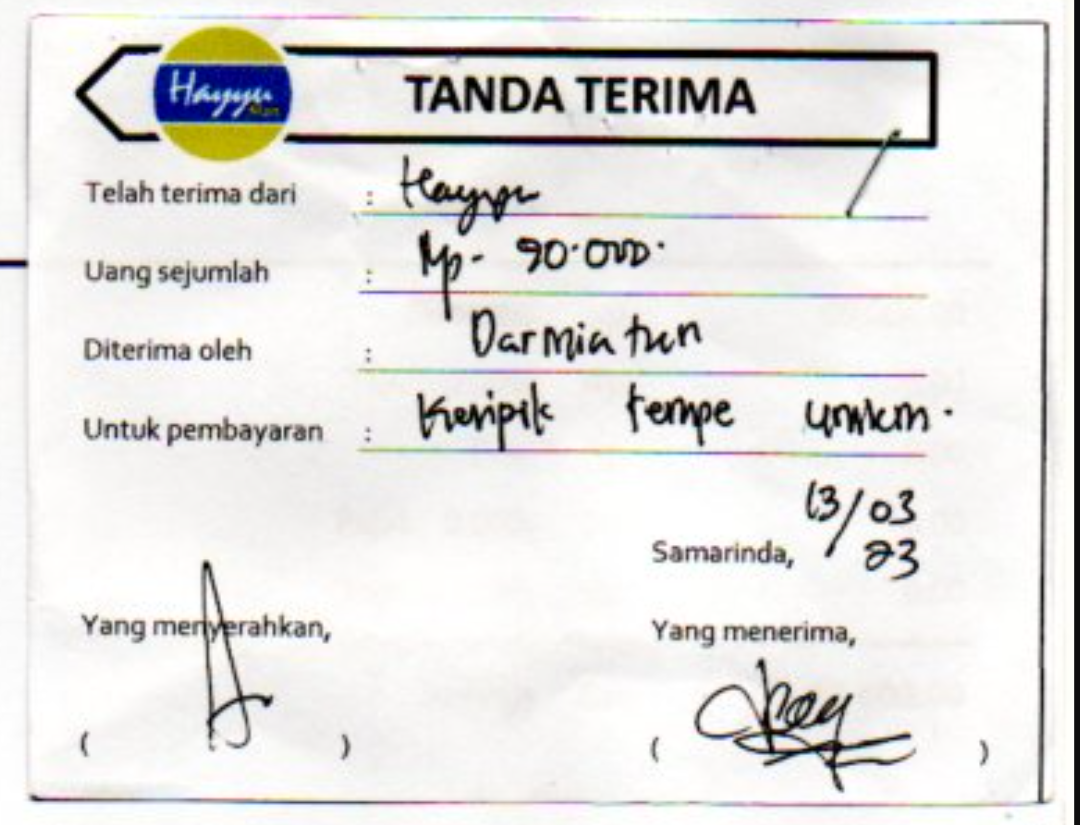 Hayyu Mart
TANDA TERIMA
Telah terima dari : Hayyu
Uang sejumlah : Rp- 90.000.
Diterima oleh : Darmiatun
Untuk pembayaran : Keripik tempe umkm.
13/03
Samarinda, 23
Yang menyerahkan, Yang menerima,
( ) ( )